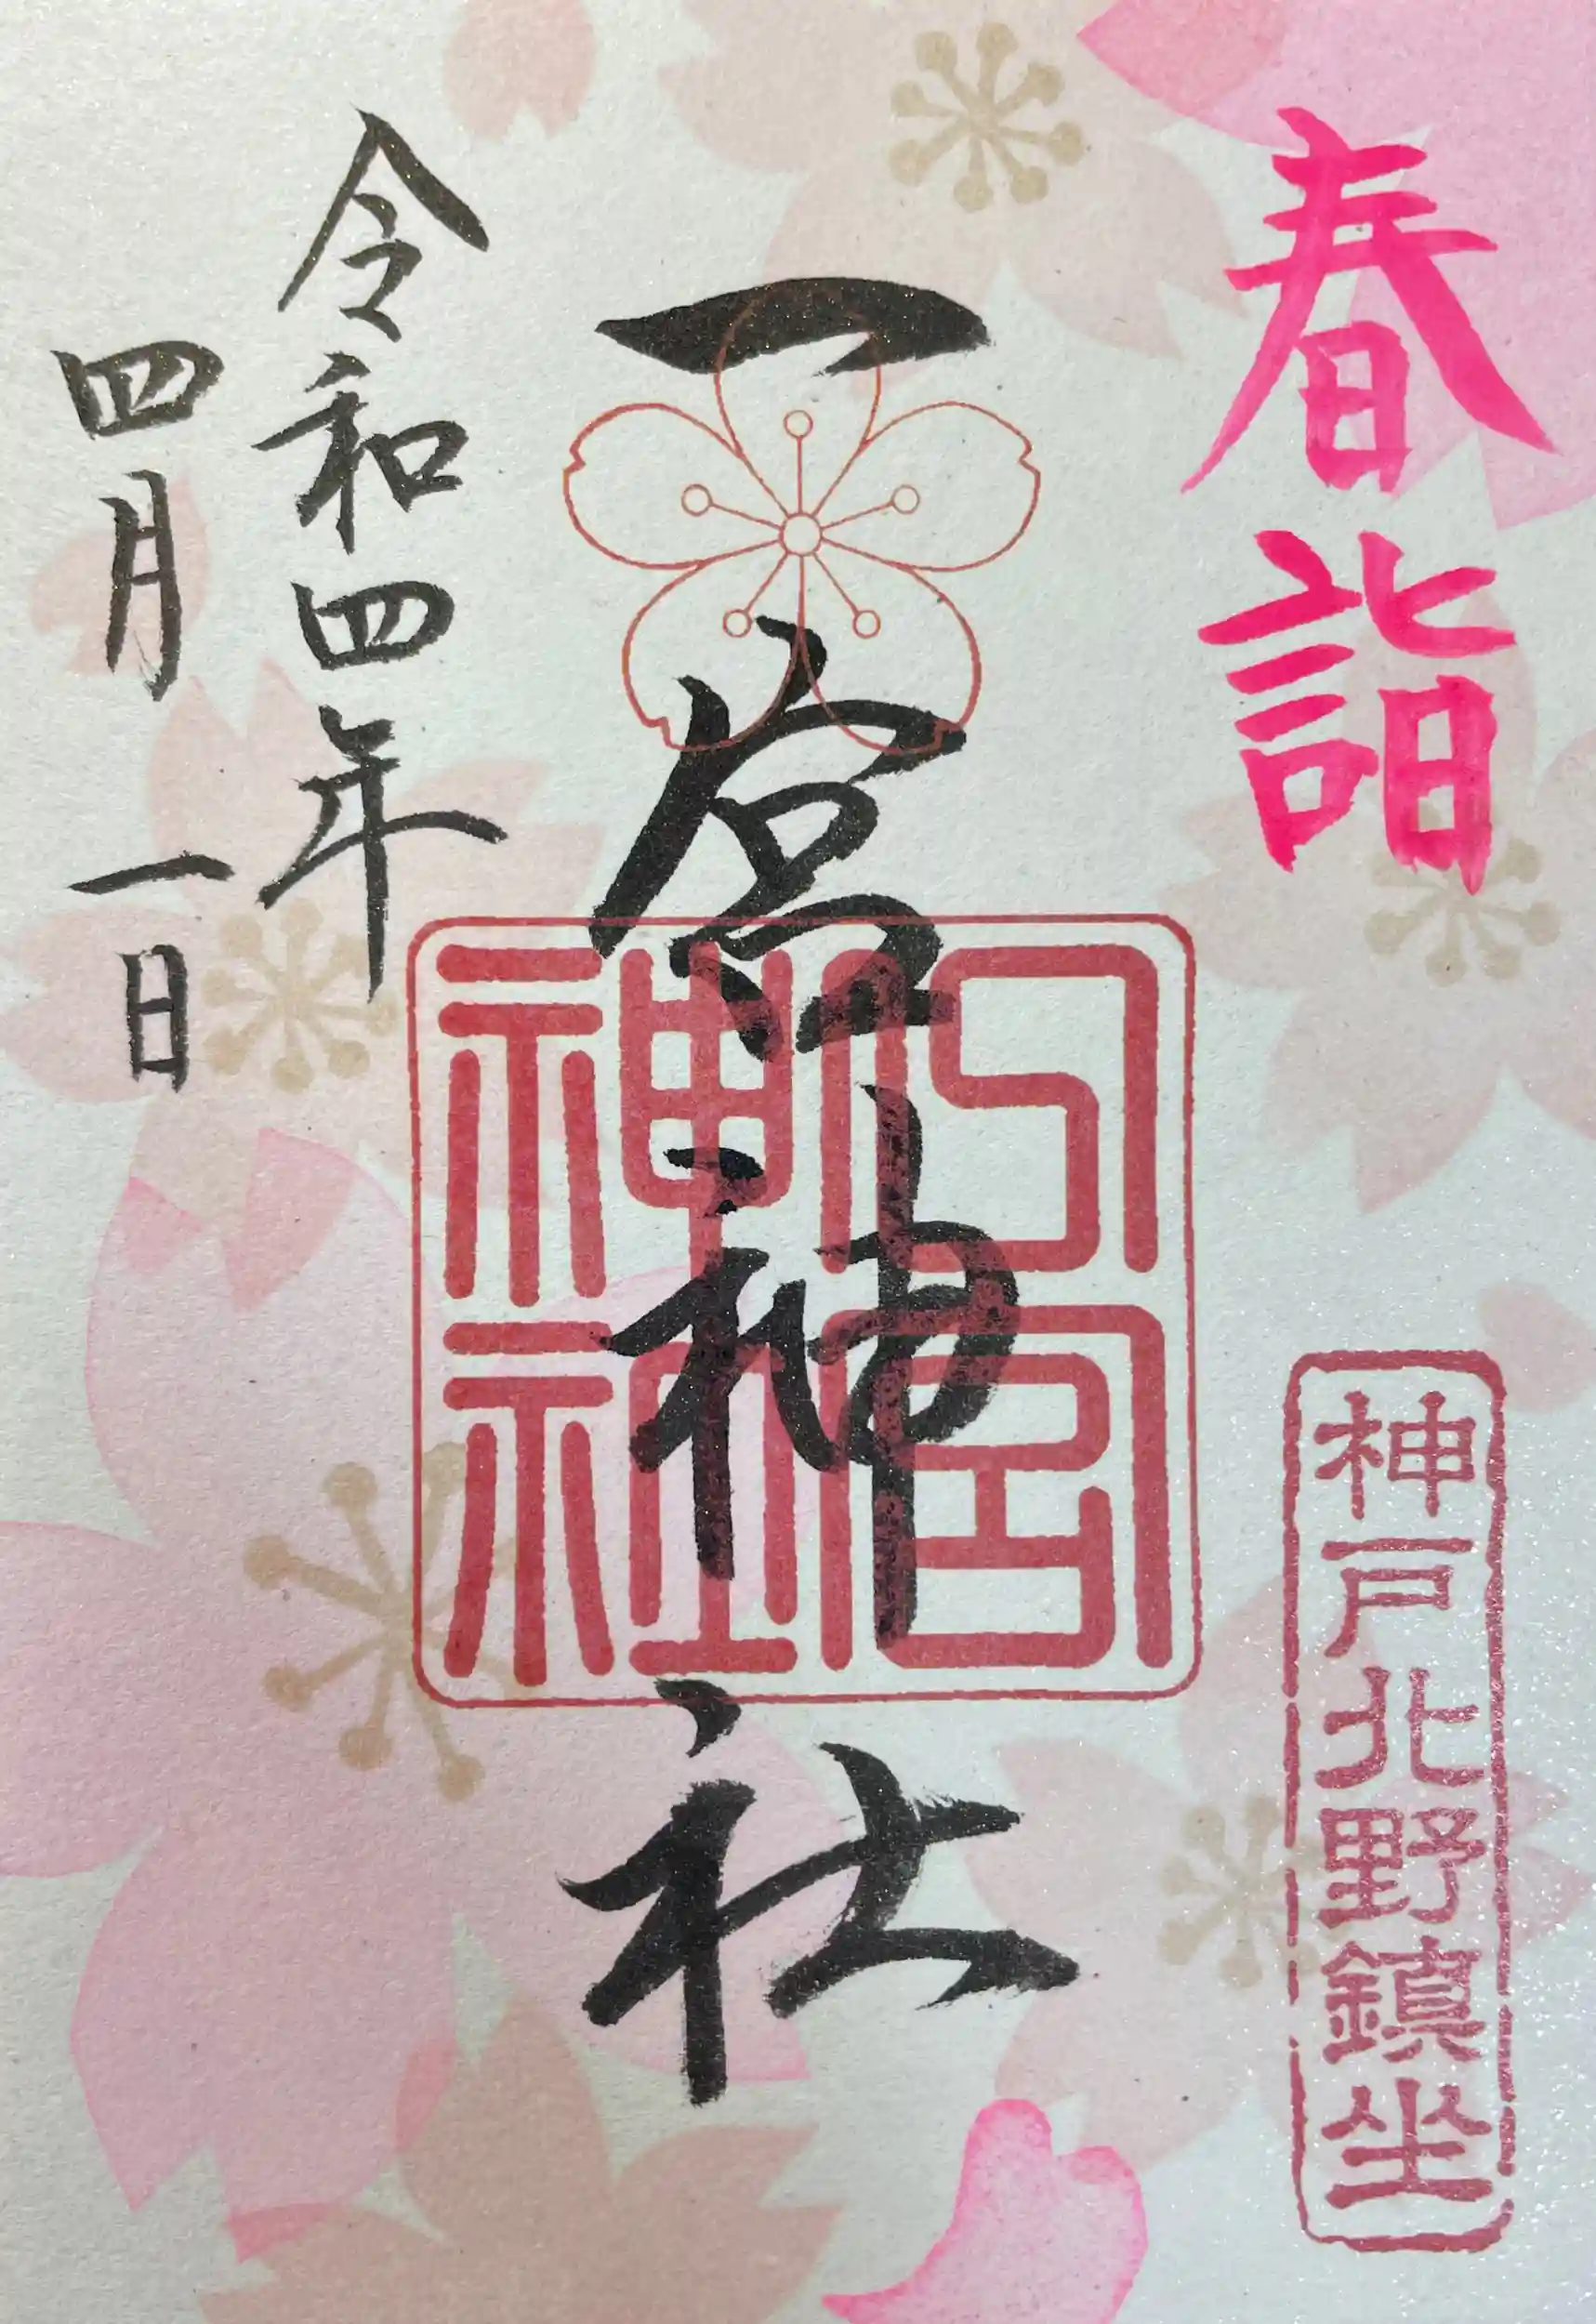 春詣
神戸北野鎮坐
一宮神社
一宮神社
令和四年
四月一日